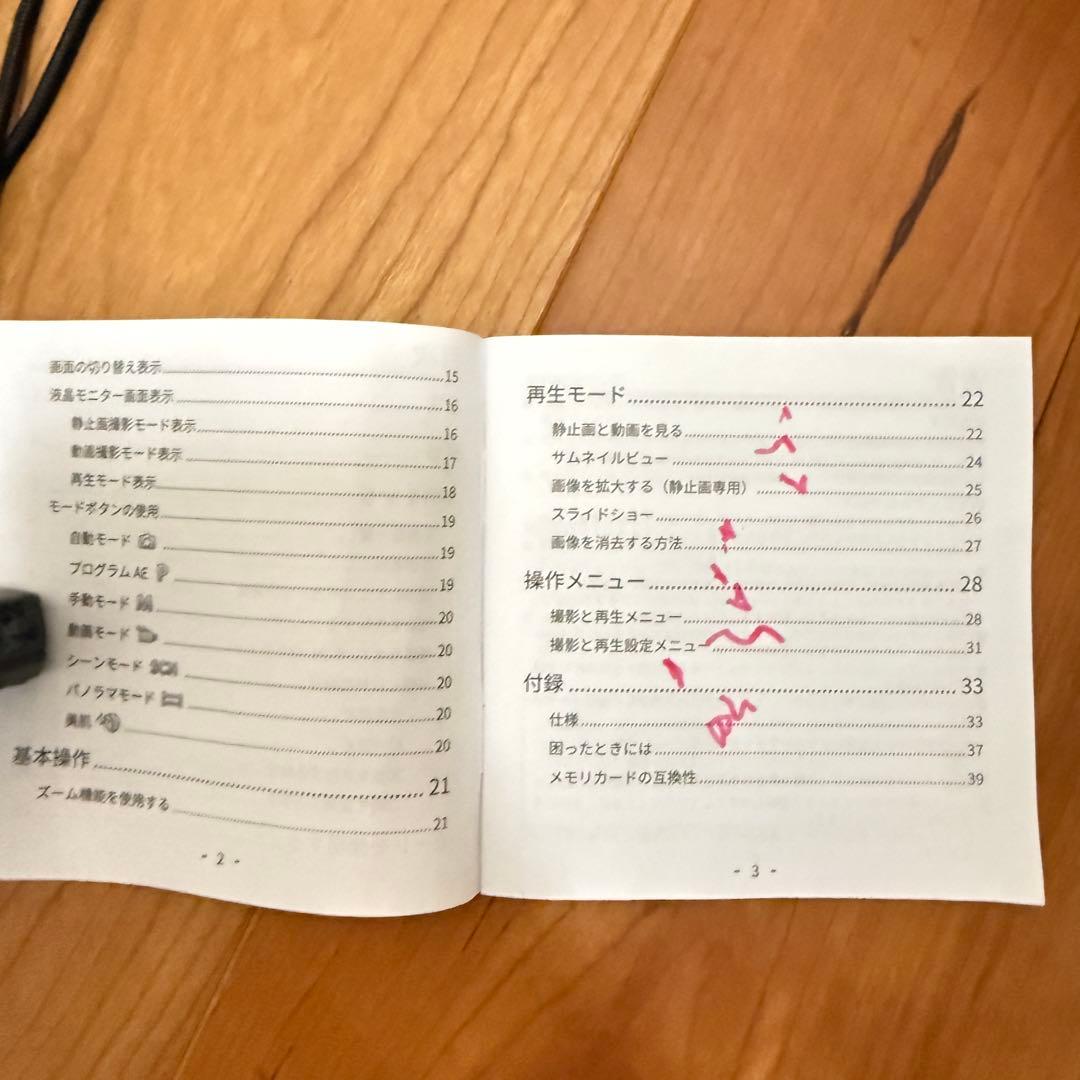 画面の切り替え表示 15
液晶モニター画面表示 16
静止画撮影モード表示 16
動画撮影モード表示 17
再生モード表示 18
モードボタンの使用 19
自動モード 19
プログラム AE 19
手動モード 20
動画モード 20
シーンモード 20
パノラマモード 20
美肌 20
基本操作 21
ズーム機能を使用する 21
- 2 -
再生モード 22
静止画と動画を見る 22
サムネイルビュー 24
画像を拡大する（静止画専用） 25
スライドショー 26
画像を消去する方法 27
操作メニュー 28
撮影と再生メニュー 28
撮影と再生設定メニュー 31
付録 33
仕様 33
困ったときには 37
メモリカードの互換性 39
- 3 -